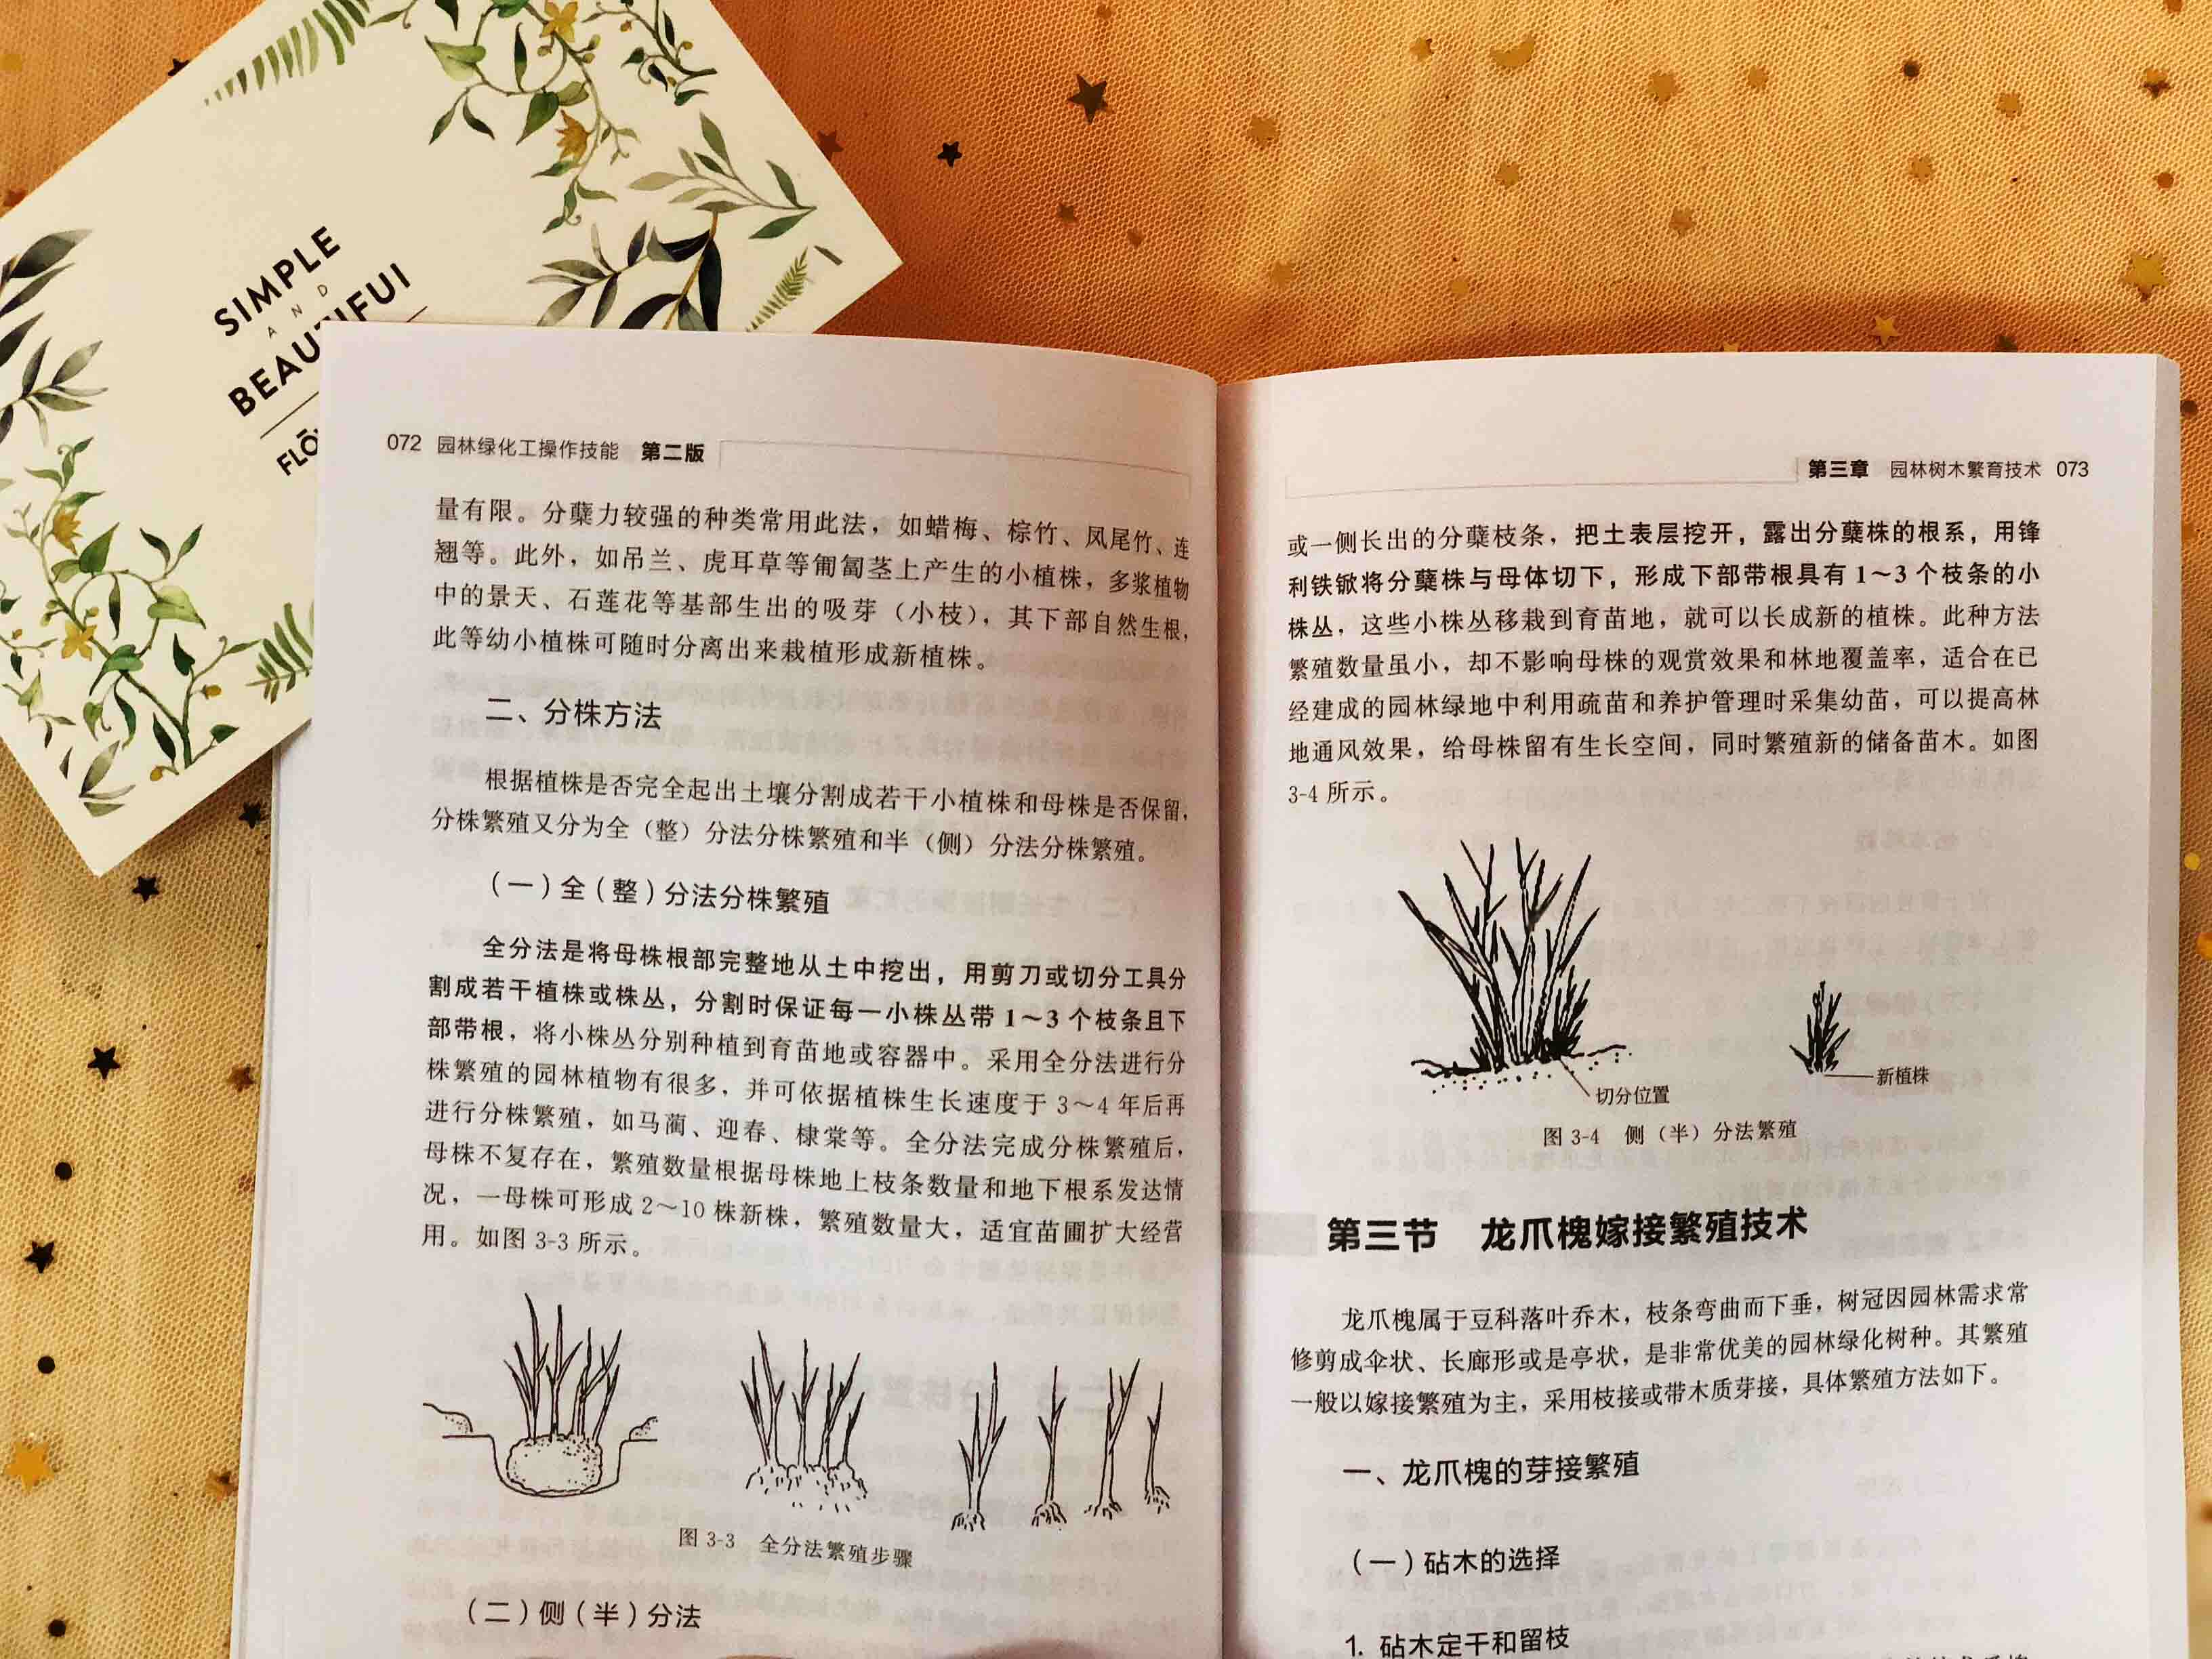 SIMPLE
AND
BEAUTIFUL
FLŌ
072 园林绿化工操作技能 第二版
量有限。分蘖力较强的种类常用此法，如蜡梅、棕竹、凤尾竹、连
翘等。此外，如吊兰、虎耳草等匍匐茎上产生的小植株，多浆植物
中的景天、石莲花等基部生出的吸芽（小枝），其下部自然生根，
此等幼小植株可随时分离出来栽植形成新植株。
二、分株方法
根据植株是否完全起出土壤分割成若干小植株和母株是否保留，
分株繁殖又分为全（整）分法分株繁殖和半（侧）分法分株繁殖。
（一）全（整）分法分株繁殖
全分法是将母株根部完整地从土中挖出，用剪刀或切分工具分
割成若干植株或株丛，分割时保证每一小株丛带 1～3 个枝条且下
部带根，将小株丛分别种植到育苗地或容器中。采用全分法进行分
株繁殖的园林植物有很多，并可依据植株生长速度于 3～4 年后再
进行分株繁殖，如马蔺、迎春、棣棠等。全分法完成分株繁殖后，
母株不复存在，繁殖数量根据母株地上枝条数量和地下根系发达情
况，一母株可形成 2～10 株新株，繁殖数量大，适宜苗圃扩大经营
用。如图 3-3 所示。
图 3-3 全分法繁殖步骤
（二）侧（半）分法
第三章 园林树木繁育技术 073
或一侧长出的分蘖枝条，把土表层挖开，露出分蘖株的根系，用锋
利铁锨将分蘖株与母体切下，形成下部带根具有 1～3 个枝条的小
株丛，这些小株丛移栽到育苗地，就可以长成新的植株。此种方法
繁殖数量虽小，却不影响母株的观赏效果和林地覆盖率，适合在已
经建成的园林绿地中利用疏苗和养护管理时采集幼苗，可以提高林
地通风效果，给母株留有生长空间，同时繁殖新的储备苗木。如图
3-4 所示。
切分位置
新植株
图 3-4 侧（半）分法繁殖
第三节 龙爪槐嫁接繁殖技术
龙爪槐属于豆科落叶乔木，枝条弯曲而下垂，树冠因园林需求常
修剪成伞状、长廊形或是亭状，是非常优美的园林绿化树种。其繁殖
一般以嫁接繁殖为主，采用枝接或带木质芽接，具体繁殖方法如下。
一、龙爪槐的芽接繁殖
（一）砧木的选择
1. 砧木定干和留枝